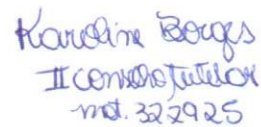 Karoline Borges
II Conselho Tutelar
mat. 322925